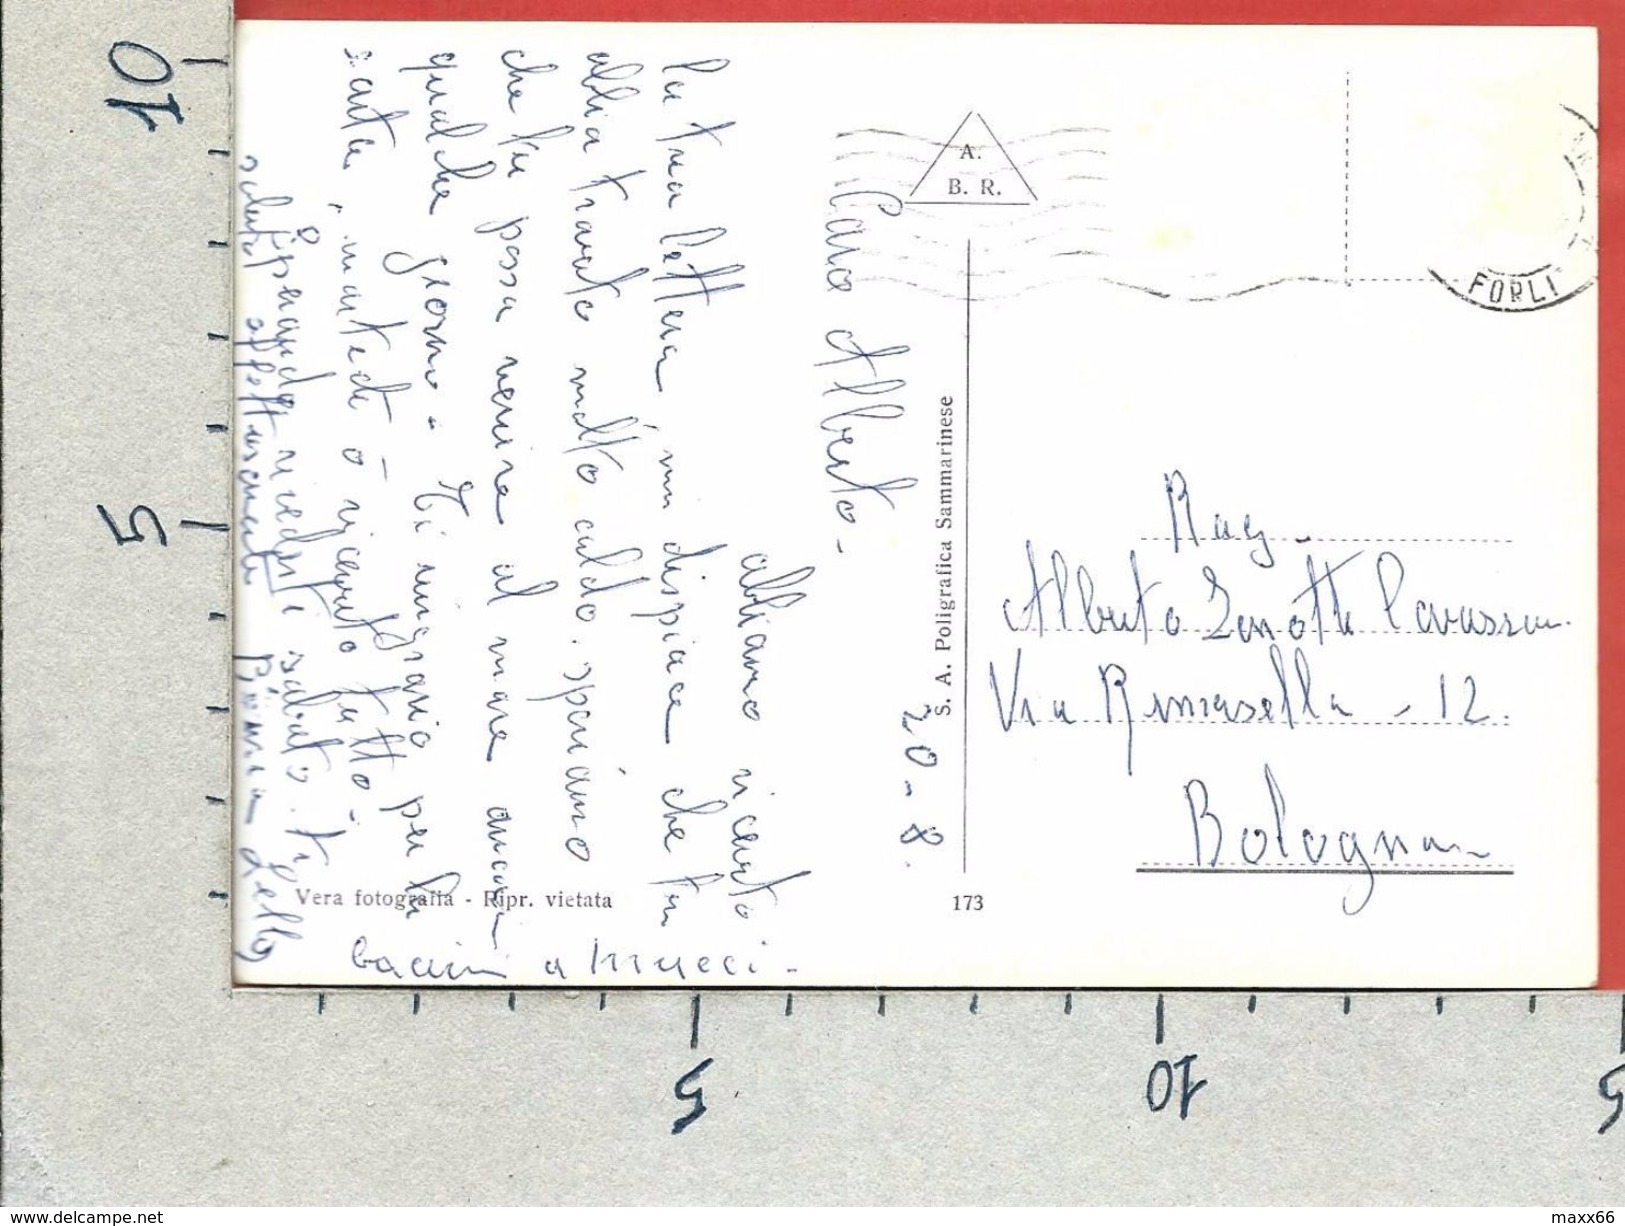 20-8.
Caro Alberto-
abbiamo ricevuto
la tua lettera, mi dispiace che tu
abbia trovato molto caldo. speriamo
che tu possa venire al mare ancora
qualche giorno. Ti ringrazio per la
carta, martedì ò ricevuto tutto-
Sperando rivederti sabato. ti
saluto affettuosamente Lella
bacini a Mucci-
A.
B. R.
FORLI
S. A. Poligrafica Sammarinese
Rag.
Alberto Zanotti Cavazzoni
Via Remorsella - 12.
Bologna
Vera fotografia - Ripr. vietata
173
10
5
5
10
5
www.delcampe.net
maxx66